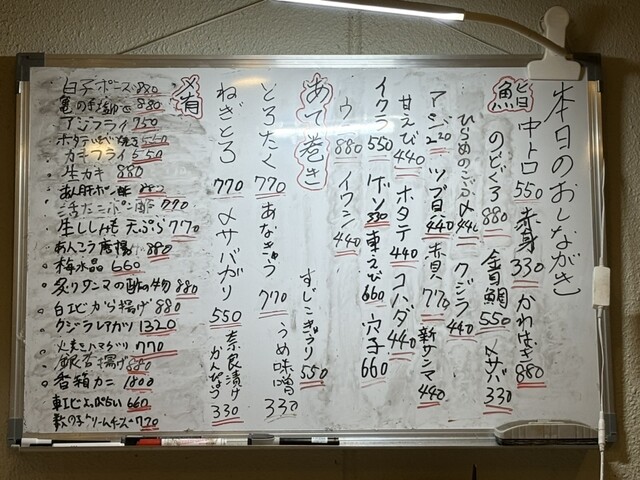 本日のおしながき
鮨
中トロ 550 赤身 330 かわはぎ 880
のどぐろ 880 金目鯛 550 〆サバ 330
ひらめのこぶ〆 440 クジラ 440
アジ 220 ツブ貝 440 赤貝 770 新サンマ 440
甘えび 440 ホタテ 440 コハダ 440
イクラ 550 ゲソ 330 車えび 660 穴子 660
ウニ 880 イワシ 440
あて巻き
すじこきゅうり 550
とろたく 770 あなきゅう 770 うめ味噌 330
ねぎとろ 770 〆サバガリ 550 奈良漬けかんぴょう 330
肴
白子ポン酢 880
880
アジフライ 750
ホタテ 550
カキフライ 550
生カキ 880
あん肝ポン酢
活だこポン酢 770
生ししゃも天ぷら 770
あんこう唐揚 880
梅水晶 660
炙りサンマの酢の物 880
白エビから揚げ 880
クジラレアカツ 1320
火焼きハマグリ 770
銀杏揚げ 880
香箱カニ 1800
車エビよっぱらい 660
数の子クリームチーズ 770